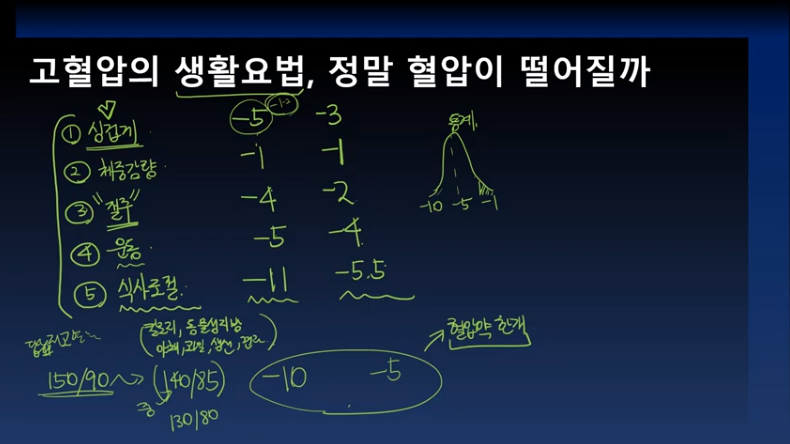 고혈압의 생활요법, 정말 혈압이 떨어질까
① 싱겁게 -5 -3
② 체중감량 -1 -1
③ "절주" -4 -2
④ 운동 -5 -4
⑤ 식사조절 -11 -5.5
통계
-10 -5 -1
(칼로리, 동물성지방
야채, 과일, 생선, 견과)
150/90 → (140/85) -10 -5 → 혈압약 한개
130/80